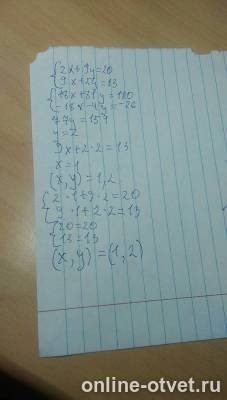 {2x+9y=20
{9x+2y=13
{18x+81y=180
-18x-4y=-26
77y=154
y=2
9x+2·2=13
x=1
(x,y)=1,2
{2·1+9·2=20
9·1+2·2=13
{20=20
13=13
(x,y)=(1,2)
online-otvet.ru